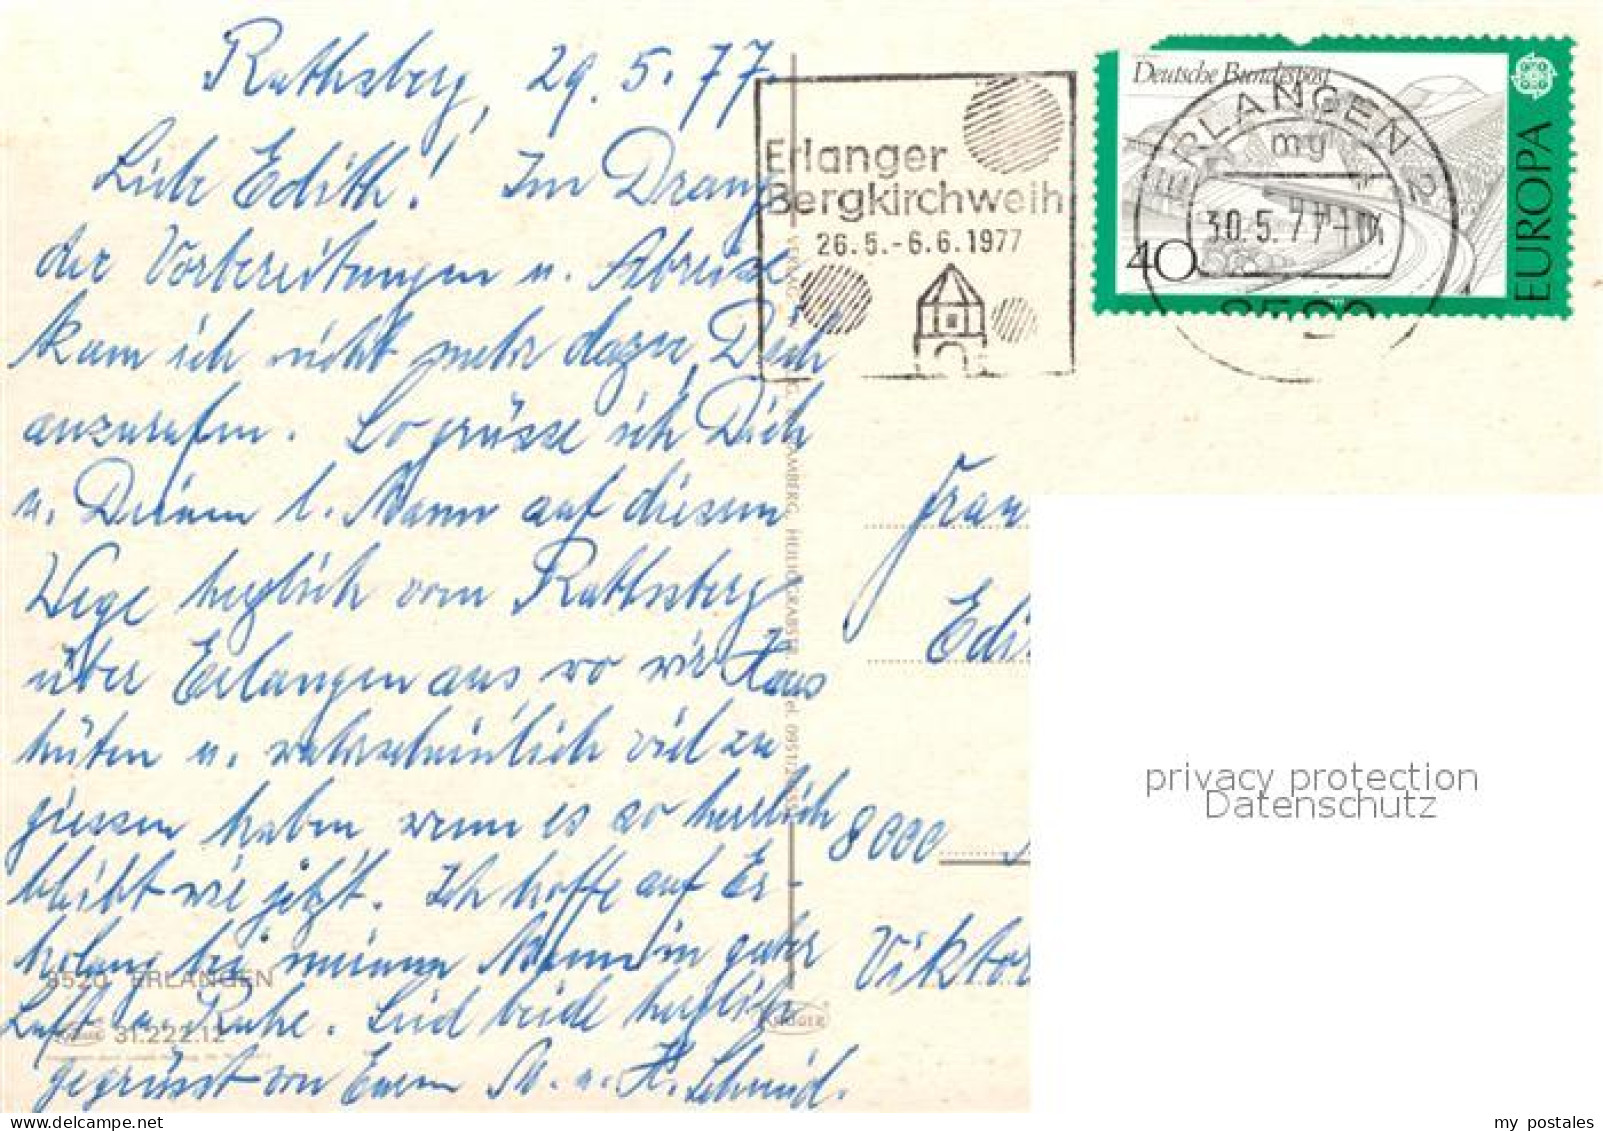 Rathsberg, 29.5.77.
Liebe Edith! Im Drang
der Vorbereitungen u. Abreise
kam ich nicht mehr dazu, Dich
anzurufen. So grüsse ich Dich
u. Deinen l. Mann auf diesem
Wege herzlich vom Rathsberg
über Erlangen aus wo wir Haus
hüten u. wahrscheinlich viel zu
giessen haben wenn es so herrlich
bleibt wie jetzt. Ich hoffe auf Er-
holung bei meinem Mann in guter
Luft u. Ruhe. Seid beide herzlich
gegrüsst von Euern M. u. H. Schmid.
8520 ERLANGEN
31.222.12
KRÜGER
Erlanger
Bergkirchweih
26.5.-6.6.1977
Deutsche Bundespost
40
EUROPA
ERLANGEN 2
mg
30.5.77
8520
Frau
Edi
8000
Viktor
privacy protection
Datenschutz
my postales